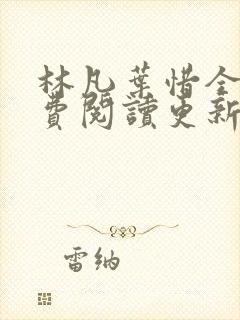 林凡葉惜全
費閱讀更新
雷納